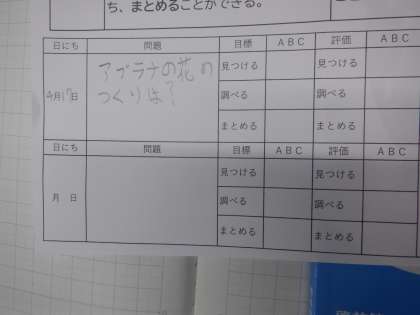 ち、まとめることができる。
日にち 問題 目標 ABC 評価 ABC
4月17日 アブラナの花の 見つける 見つける
つくりは? 調べる 調べる
まとめる まとめる
日にち 問題 目標 ABC 評価 ABC
月 日 見つける 見つける
調べる 調べる
まとめる まとめる